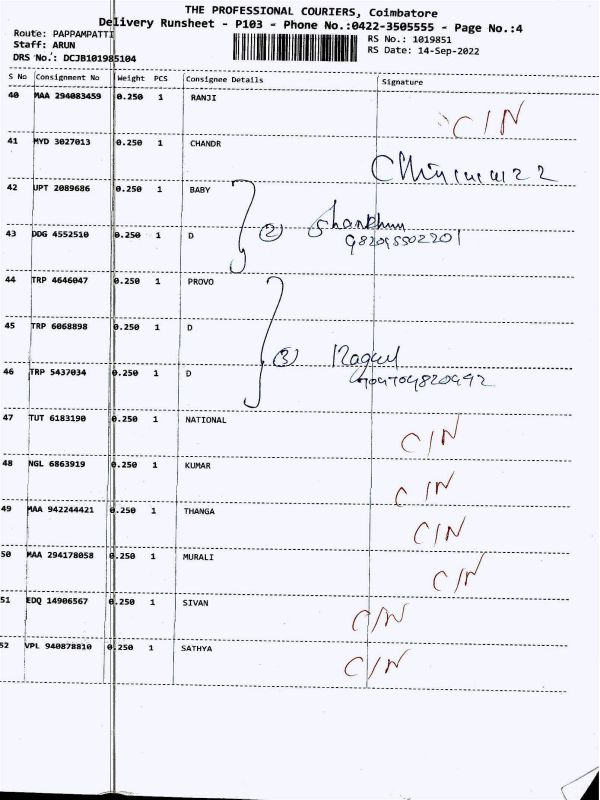 THE PROFESSIONAL COURIERS, Coimbatore
Delivery Runsheet - P103 - Phone No.:0422-3505555 - Page No.:4
Route: PAPPAMPATTI RS No.: 1019851
Staff: ARUN RS Date: 14-Sep-2022
DRS No.: DCJB101985104
S No Consignment No Weight PCS Consignee Details Signature
40 MAA 294083459 0.250 1 RANJI C/N
41 MYD 3027013 0.250 1 CHANDR
42 UPT 2089686 0.250 1 BABY
43 DDG 4552510 0.250 1 D ②
44 TRP 4646047 0.250 1 PROVO
45 TRP 6068898 0.250 1 D
46 TRP 5437034 0.250 1 D ③
47 TUT 6183190 0.250 1 NATIONAL C/N
48 NGL 6863919 0.250 1 KUMAR C/N
49 MAA 942244421 0.250 1 THANGA C/N
50 MAA 294178058 0.250 1 MURALI C/N
51 EDQ 14906567 0.250 1 SIVAN C/N
52 VPL 940878810 0.250 1 SATHYA C/N